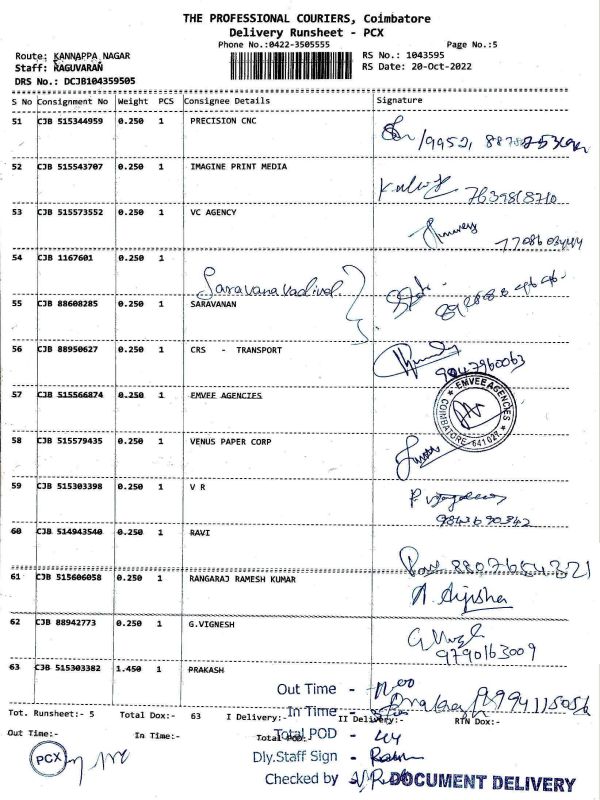 THE PROFESSIONAL COURIERS, Coimbatore
Delivery Runsheet - PCX
Phone No.:0422-3505555 Page No.:5
Route: KANNAPPA NAGAR RS No.: 1043595
Staff: RAGUVARAN RS Date: 20-Oct-2022
DRS No.: DCJB104359505
S No Consignment No Weight PCS Consignee Details Signature
51 CJB 515344959 0.250 1 PRECISION CNC
52 CJB 515543707 0.250 1 IMAGINE PRINT MEDIA
53 CJB 515573552 0.250 1 VC AGENCY
54 CJB 1167601 0.250 1
Saravanavadivel
55 CJB 88608285 0.250 1 SARAVANAN
56 CJB 88950627 0.250 1 CRS - TRANSPORT
9047960063
57 CJB 515566874 0.250 1 EMVEE AGENCIES
EMVEE AGENCIES COIMBATORE 641 027
58 CJB 515579435 0.250 1 VENUS PAPER CORP
59 CJB 515303398 0.250 1 V R
9843690342
60 CJB 514943540 0.250 1 RAVI
8807654321
61 CJB 515606058 0.250 1 RANGARAJ RAMESH KUMAR
62 CJB 88942773 0.250 1 G.VIGNESH
9790163009
63 CJB 515303382 1.450 1 PRAKASH
Out Time -
Tot. Runsheet:- 5 Total Dox:- 63 I Delivery:- In Time - II Delivery:- RTN Dox:-
Out Time:- In Time:- Total POD:- Total POD -
PCX
Dly.Staff Sign -
Checked by - DOCUMENT DELIVERY